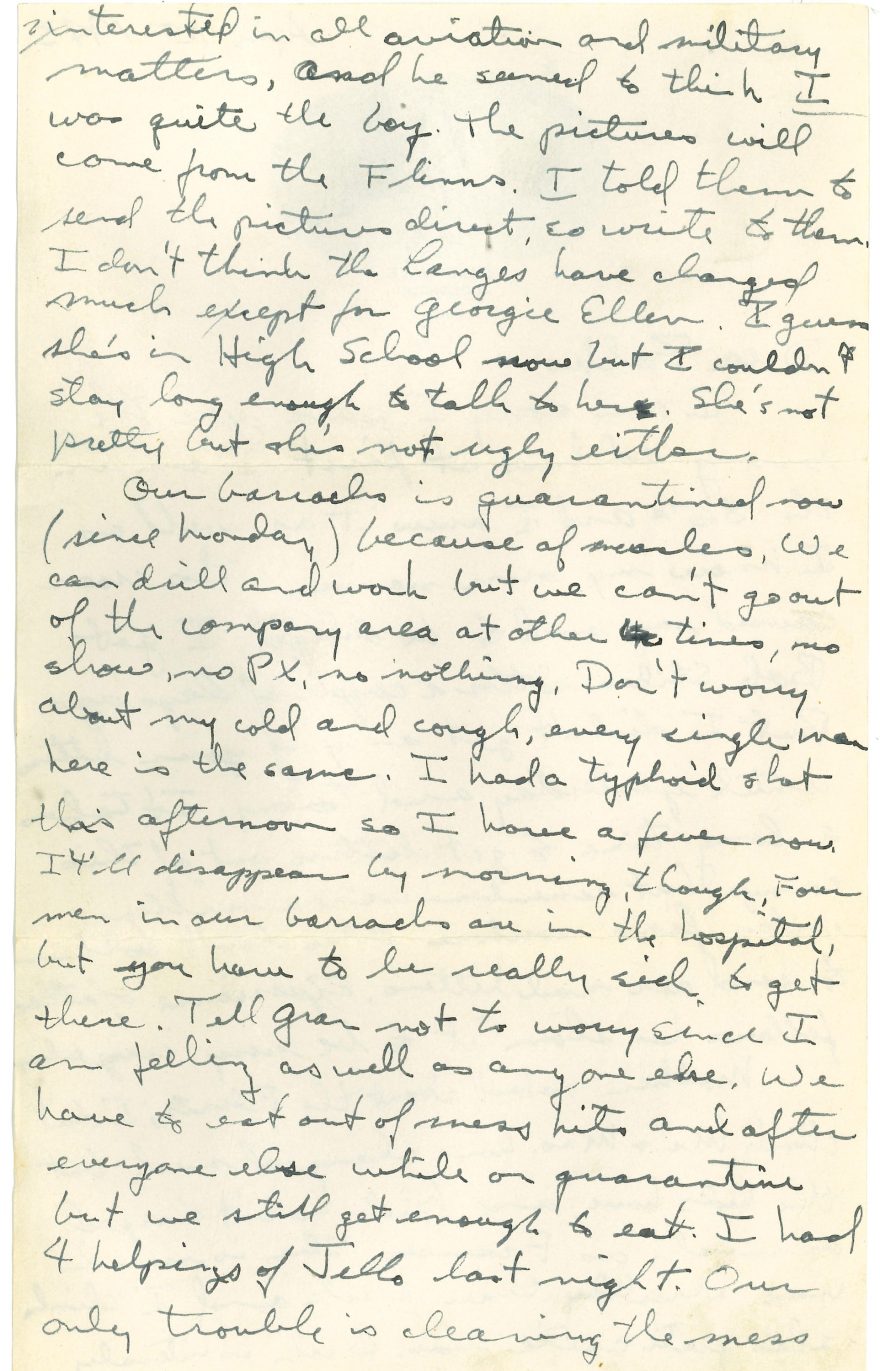 interested in all aviation and military
matters, and he seemed to think I
was quite the boy. The pictures will
come from the Flinns. I told them to
send the pictures direct, so write to them.
I don't think the Langes have changed
much except for Georgie Ellen. I guess
she's in High School now but I couldn't
stay long enough to talk to her. She's not
pretty but she's not ugly either.
Our barracks is quarantined now
(since Monday) because of measles. We
can drill and work but we can't go out
of the company area at other times, no
show, no PX, no nothing. Don't worry
about my cold and cough, every single man
here is the same. I had a typhoid shot
this afternoon so I have a fever now.
It'll disappear by morning, though. Four
men in our barracks are in the hospital,
but you have to be really sick to get
there. Tell Gran not to worry since I
am felling as well as anyone else. We
have to eat out of mess kits and after
everyone else while on quarantine
but we still get enough to eat. I had
4 helpings of Jello last night. Our
only trouble is cleaning the mess